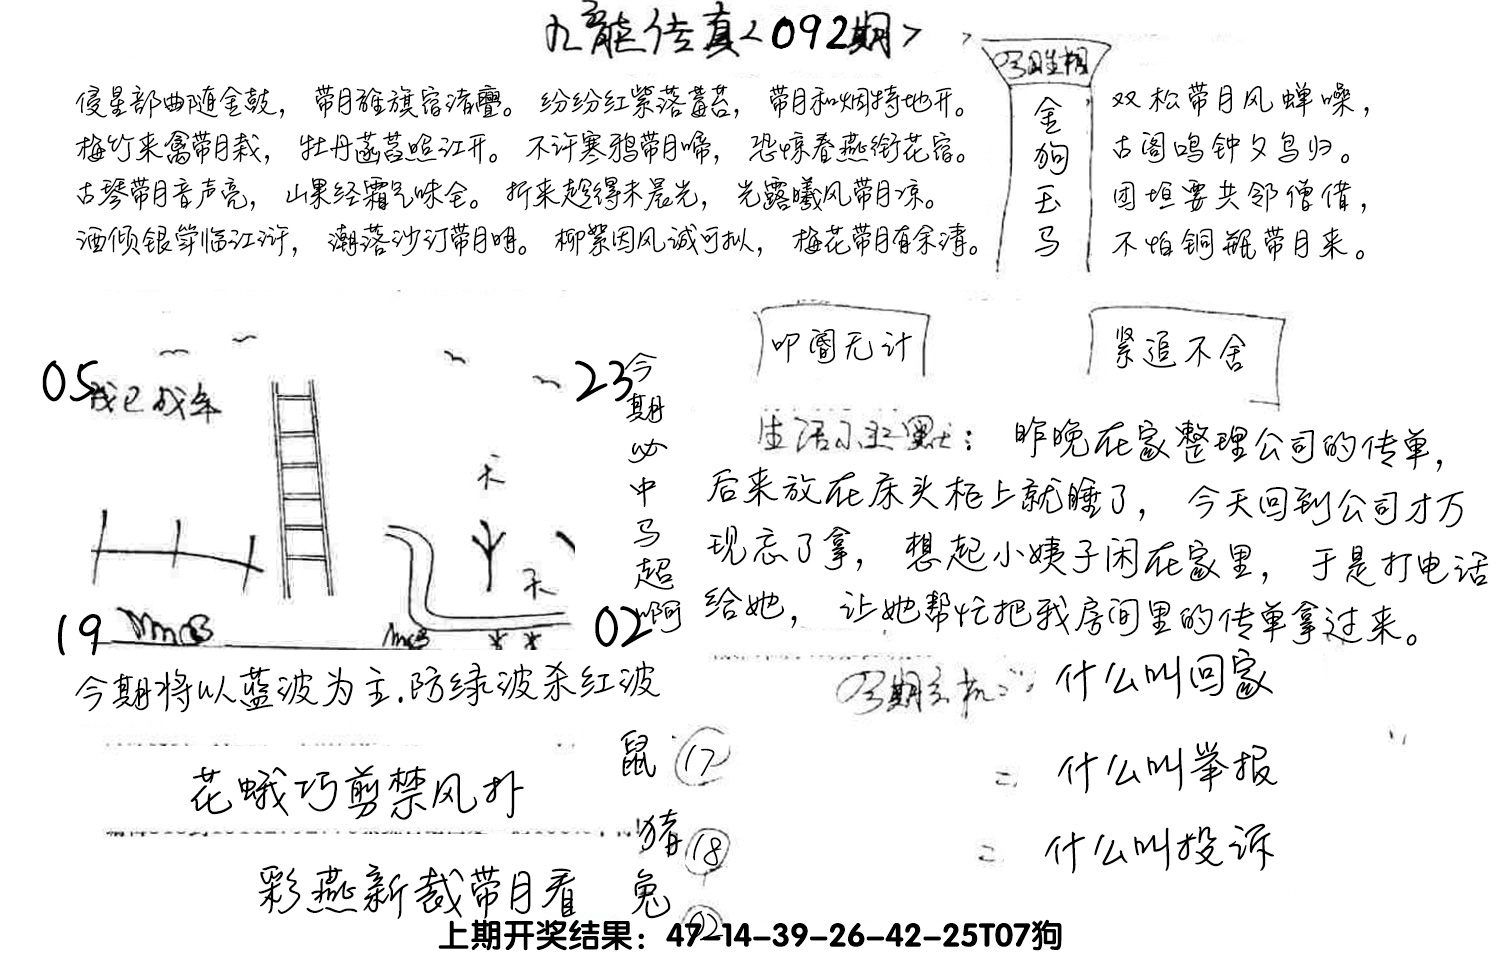 九龍传真<092期>
侵星部曲随金鼓，带月旌旗宿渚亹。纷纷红紫落莓苔，带月和烟特地开。
梅竹来禽带月栽，牡丹菡萏照江开。不许寒鸦带月啼，恐惊春燕衔花宿。
古琴带月音声亮，山果经霜气味全。折来趁得未晨光，光露曦风带月凉。
酒倾银筝临江浒，潮落沙汀带月明。柳絮因风诚可拟，梅花带月有余清。
金
狗
玉
马
双松带月风蝉噪，
古阁鸣钟夕鸟归。
团垣要共邻僧借，
不怕铜瓶带月来。
叩阍无计
紧追不舍
05
23
19
02
天
今
期
必
中
马
超
啊
生活 默：昨晚在家整理公司的传单，
后来放在床头柜上就睡了，今天回到公司才万
现忘了拿，想起小姨子闲在家里，于是打电话
给她，让她帮忙把我房间里的传单拿过来。
今期将以蓝波为主.防绿波杀红波
什么叫回家
什么叫举报
什么叫投诉
花蛾巧剪禁风扑
彩燕新裁带月看
鼠 17
猪 18
兔 02
上期开奖结果：47-14-39-26-42-25T07狗